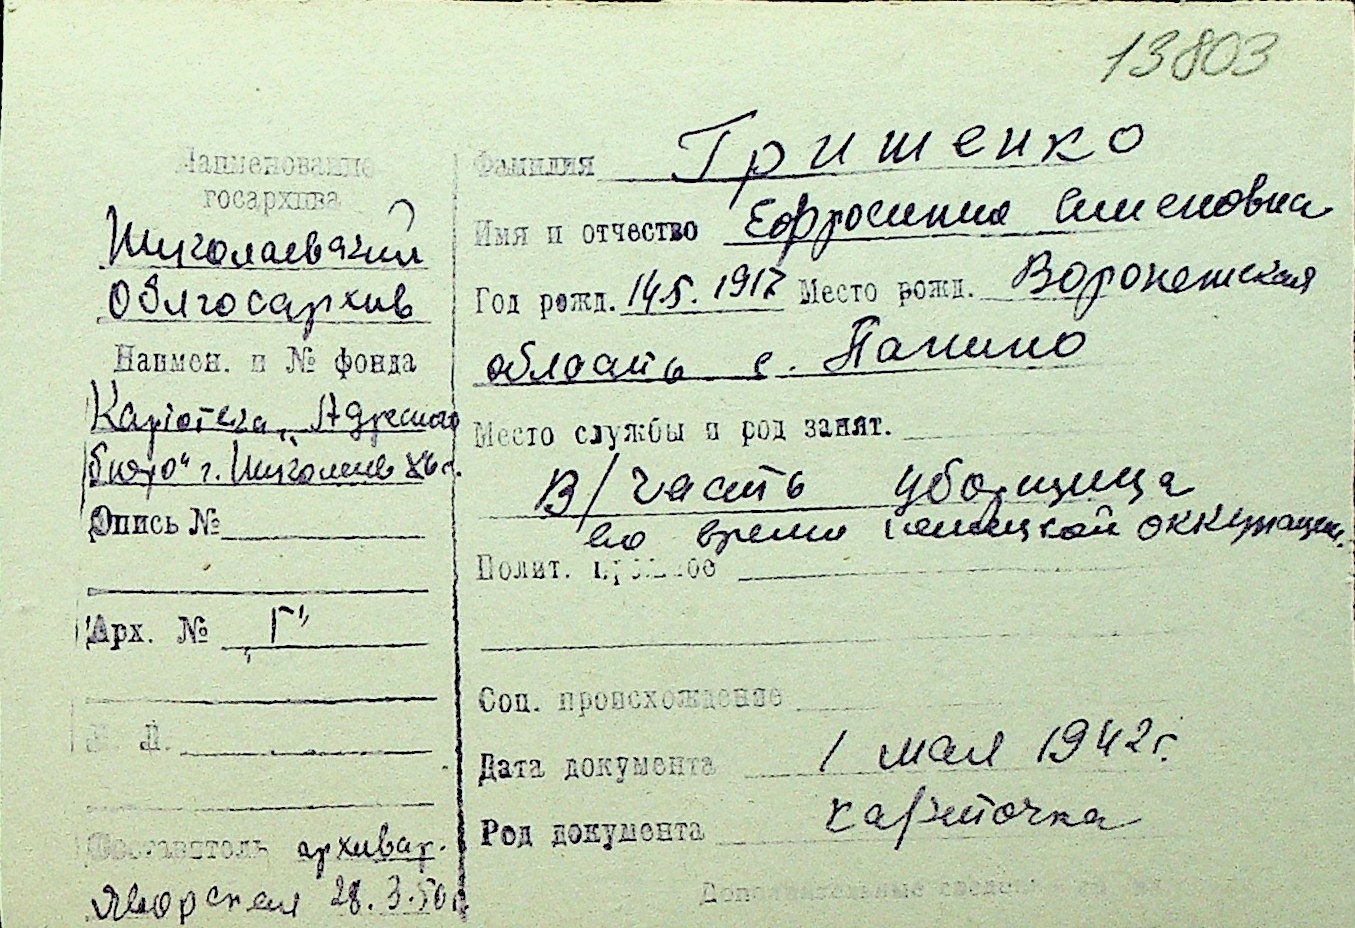 13803
Наименование
госархива
Николаевский
Облгосархив
Наимен. и № фонда
Картотека „Адресного
бюро" г. Николаев
Опись №
Арх. № „Г"
Л. Л.
Составитель архивар.
Яворская 28.3.50г.
Фамилия Гришенко
Имя и отчество Ефросиния Семеновна
Год рожд. 14.5.1917 Место рожд. Воронежская
область с. Панино
Место службы и род занят.
В/часть уборщица
во время немецкой оккупации.
Полит. прошлое
Соц. происхождение
Дата документа 1 мая 1942 г.
Род документа карточка
Дополнительные сведения